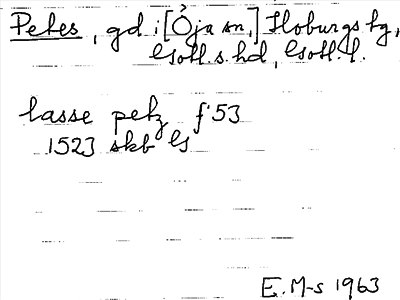 Petes, gd i [Öja sn,] Hoburgs tg,
Gotl. s. hd, Gotl. l.
lasse petz f 53
1523 skb G
E. M-s 1963